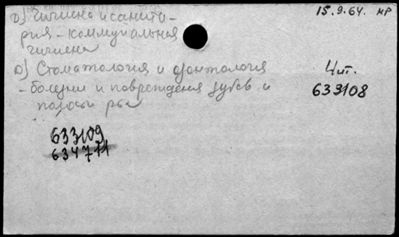 D) Гигиена и санита-
рия - коммунальная
гигиена
15.9.64. мр
D) Стоматология и одонтология
- болезни и повреждения зубов и
полости рта
Чит.
633108
633109
634711